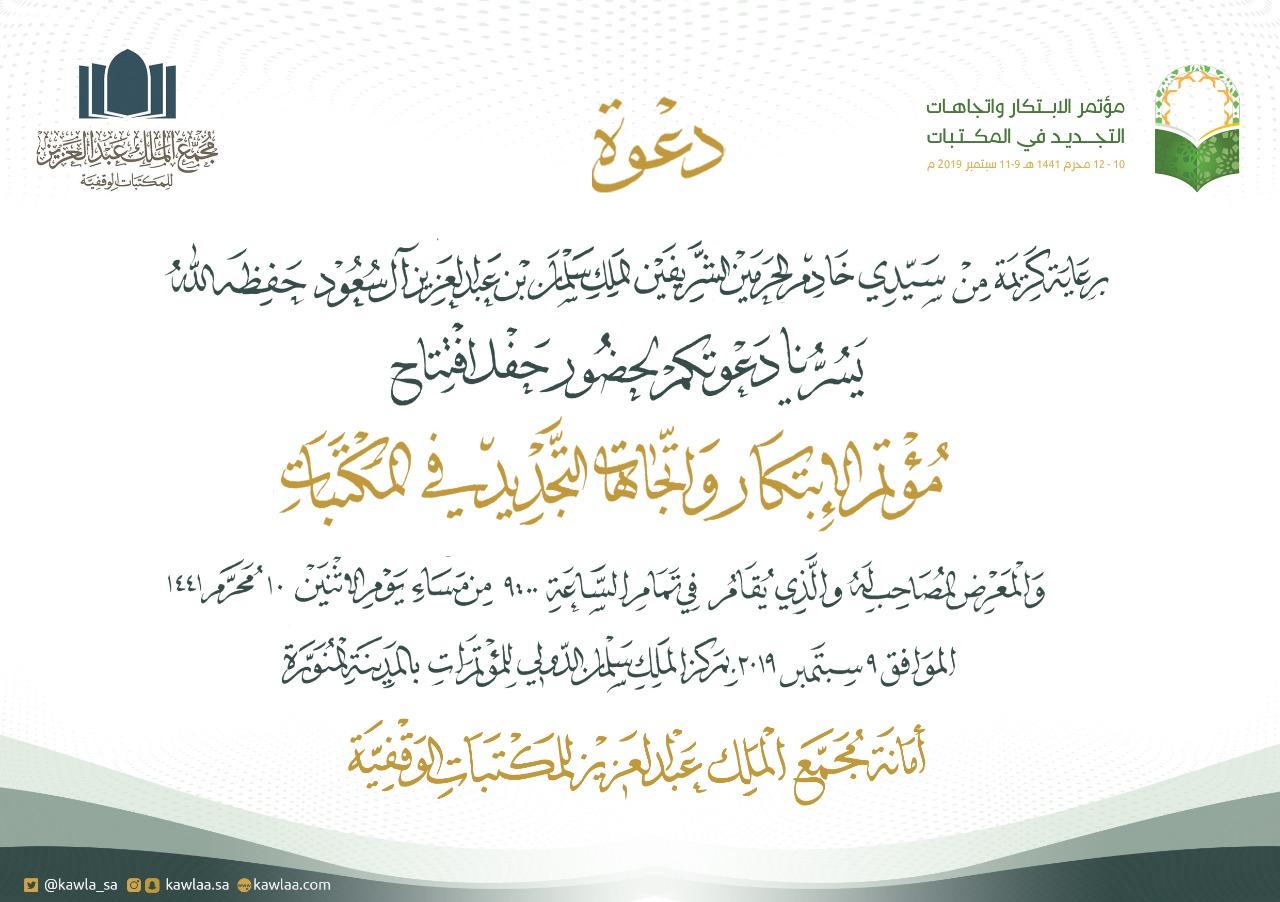 مؤتمر الابتكار واتجاهات
التجديد في المكتبات
10 - 12 محرم 1441 هـ 9-11 سبتمبر 2019 م
دعوة
مجمع الملك عبدالعزيز
للمكتبات الوقفية
برعاية كريمة من سيدي خادم الحرمين الشريفين الملك سلمان بن عبدالعزيز آل سعود حفظه الله
يسرنا دعوتكم لحضور حفل افتتاح
مؤتمر الإبتكار واتجاهات التجديد في المكتبات
والمعرض المصاحب له والذي يقام في تمام الساعة ٩:٠٠ من مساء يوم الاثنين ١٠ محرم ١٤٤١
الموافق ٩ سبتمبر ٢٠١٩ بمركز الملك سلمان الدولي للمؤتمرات بالمدينة المنورة
أمانة مجمع الملك عبدالعزيز للمكتبات الوقفية
@kawla_sa kawlaa.sa kawlaa.com